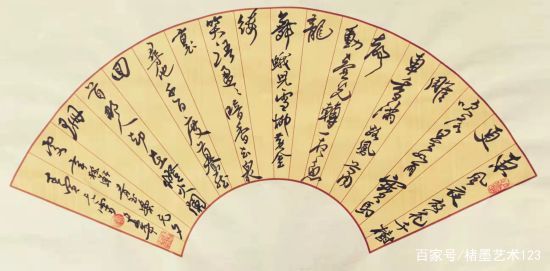 東風夜放花千樹
更
吹落星如雨寶馬
雕
車香滿路鳳簫
聲
動壺光轉一夜魚
龍
舞蛾兒雪柳黃金
縷
笑語盈盈暗香去眾
裏
尋他千百度驀然
回
首那人却在燈火闌
珊
處
辛棄疾青玉案元夕
百家号/楮墨艺术123